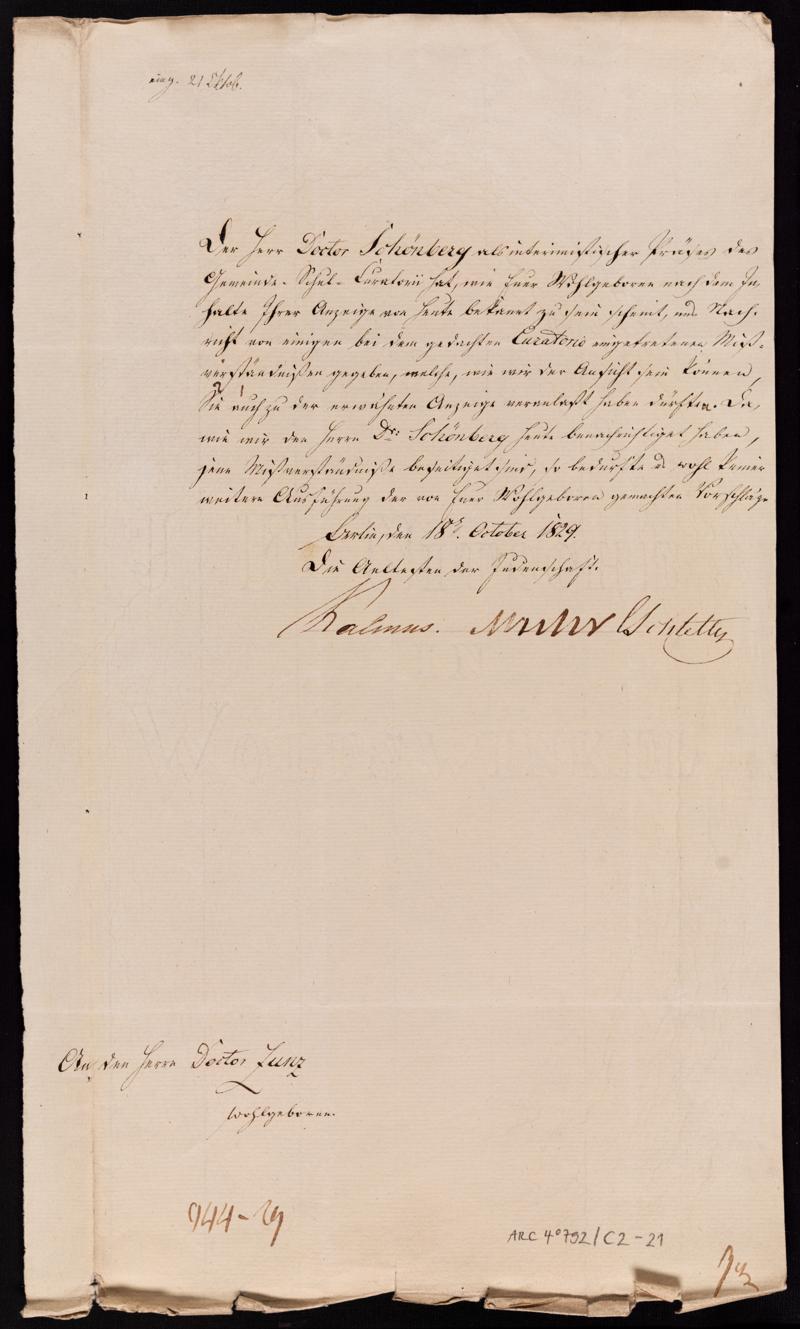 eing. 21 Oktob.
Der Herr Doctor Schönberg als interimistischer Präses des
Gemeinde-Schul-Curatorii hat, wie Euer Wohlgeboren nach dem In-
halte Ihrer Anzeige von heute bekannt zu sein scheint, uns Nach-
richt von einigen bei dem gedachten Curatorio eingetretenen Miß-
verständnißen gegeben, welche, wie wir der Ansicht sein können,
Sie auch zu der erwähnten Anzeige veranlaßt haben dürften. Da,
wie wir den Herrn Dr: Schönberg heute benachrichtiget haben,
jene Mißverständniße beseitiget sind, so bedürfte es wohl keiner
weitern Ausführung der von Euer Wohlgeboren gemachten Vorschläge
Berlin, den 18t. October 1829.
Die Aeltesten der Judenschaft.
Kalmus. Schlette
An den Herrn Doctor Zunz
Wohlgeboren.
944-29
ARC 4° 792/C2-21